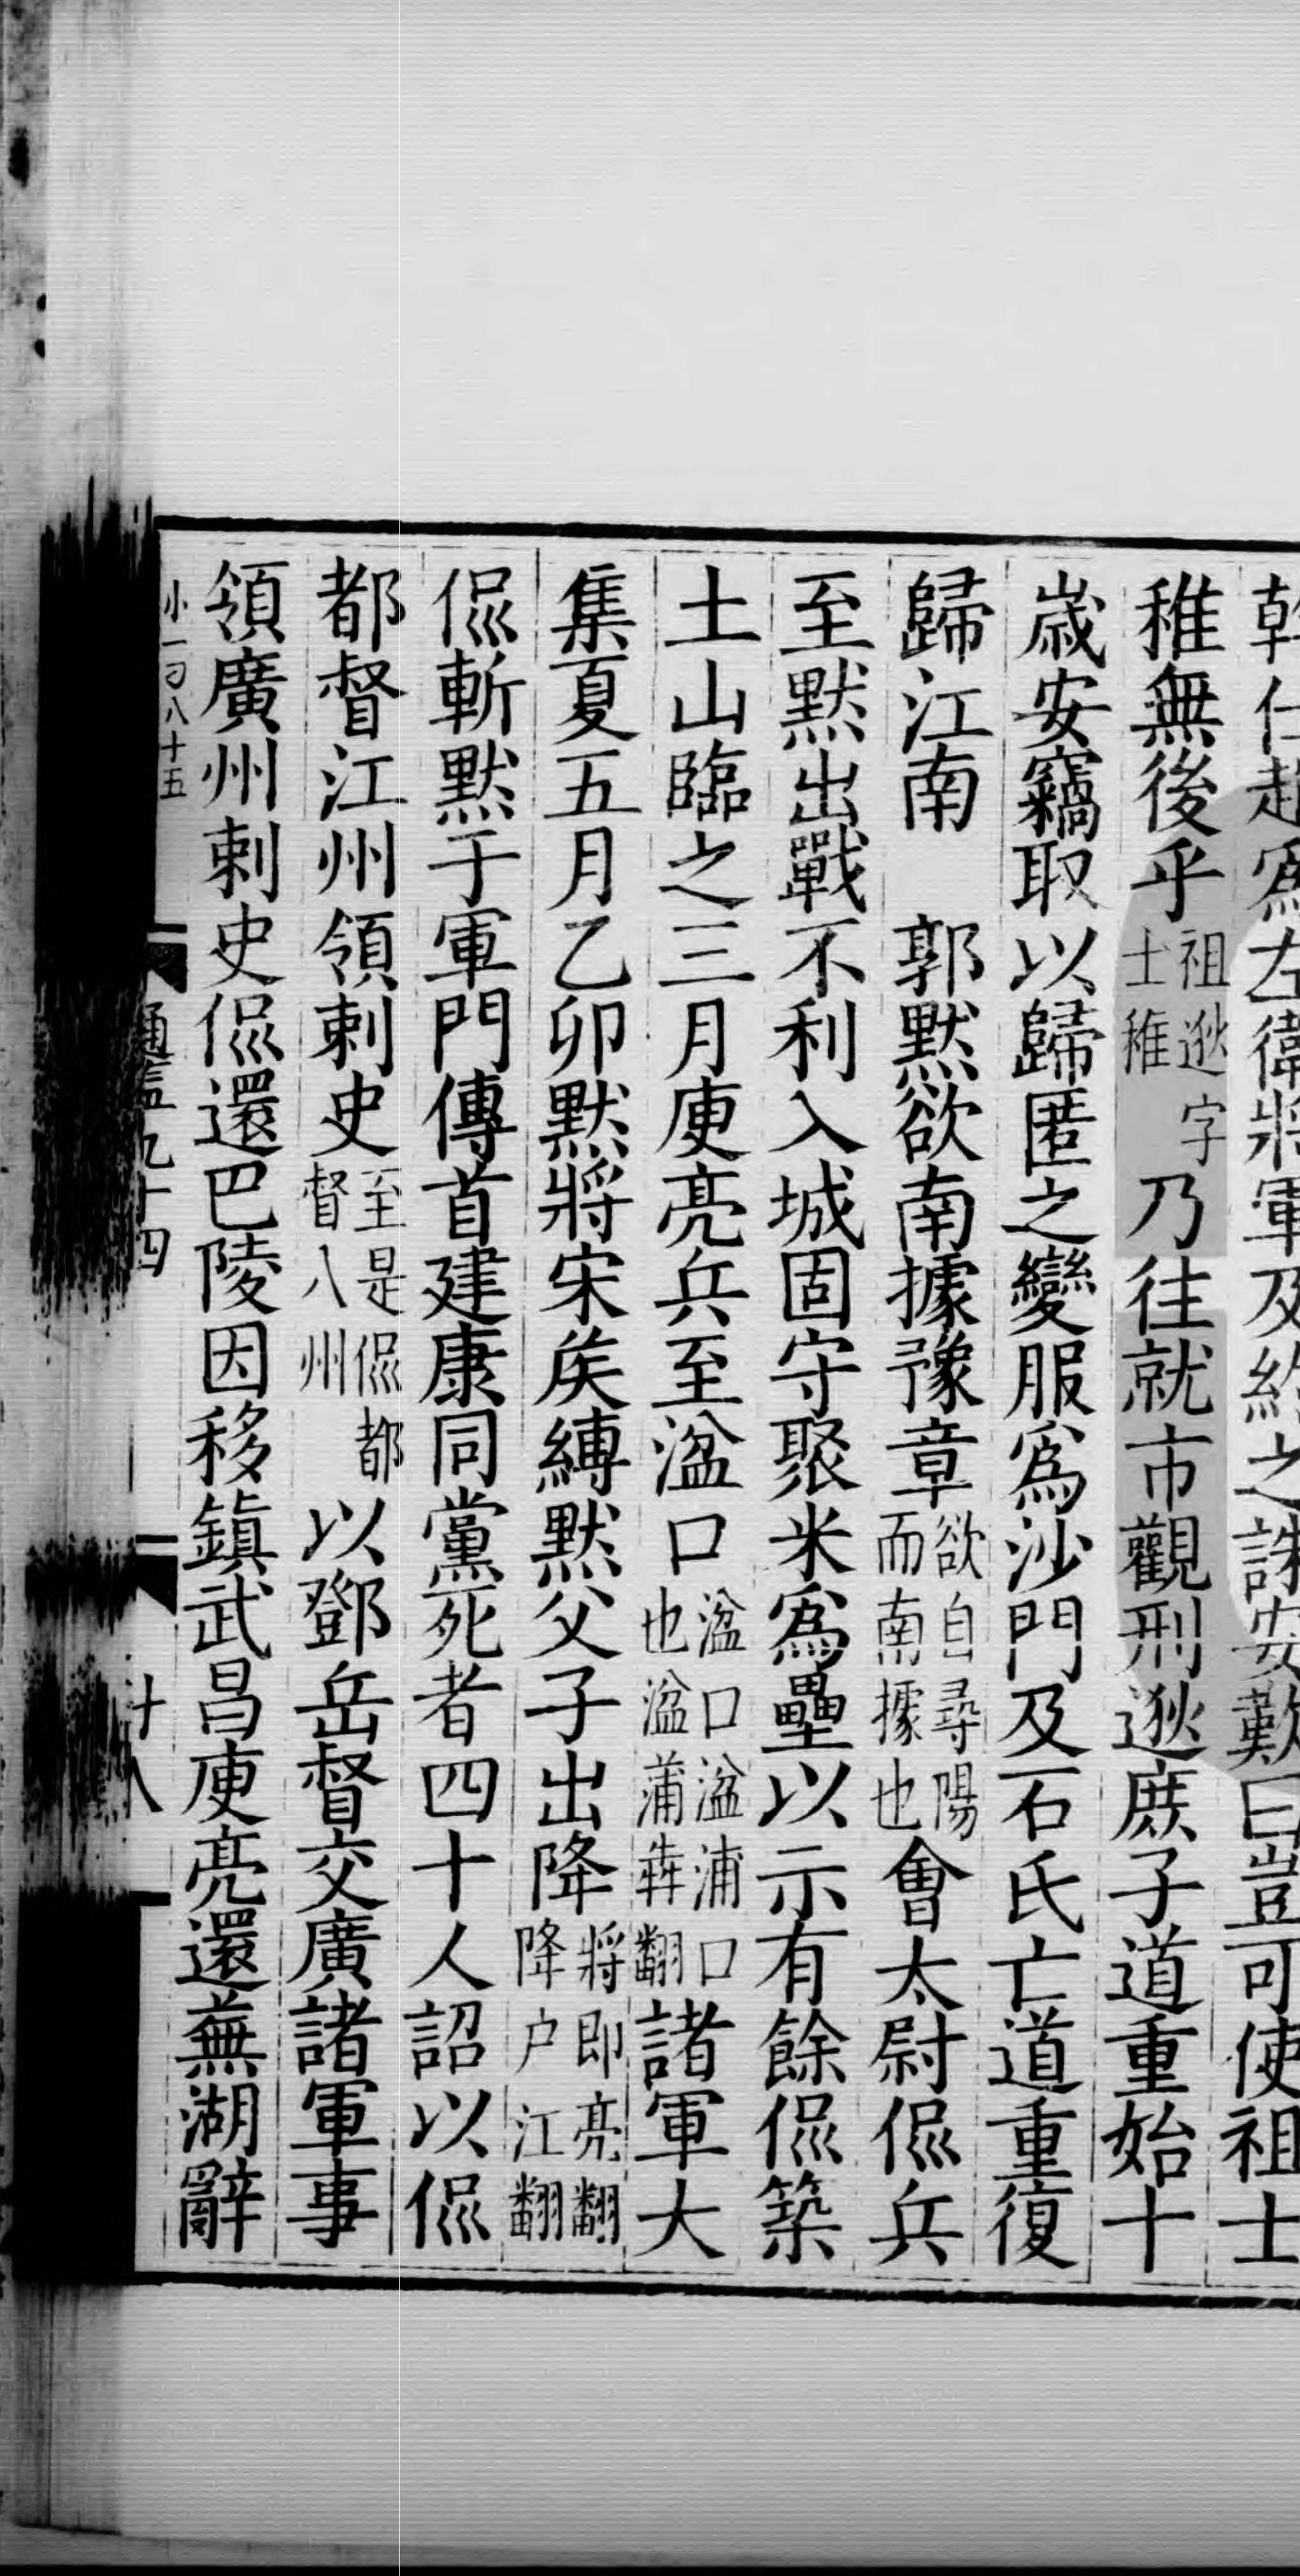 幹仕趙爲左衛將軍及約之誅安歎曰豈可使祖士
稚無後乎祖逖字士稚乃往就市觀刑逖庶子道重始十
歲安竊取以歸匿之變服爲沙門及石氏亡道重復
歸江南　郭默欲南據豫章欲自尋陽而南據也會太尉侃兵
至默出戰不利入城固守聚米爲壘以示有餘侃築
土山臨之三月庾亮兵至湓口湓口湓浦口也湓蒲犇翻諸軍大
集夏五月乙卯默將宋侯縛默父子出降將即亮翻降户江翻
侃斬默于軍門傳首建康同黨死者四十人詔以侃
都督江州領刺史至是侃都督八州以鄧岳督交廣諸軍事
領廣州刺史侃還巴陵因移鎮武昌庾亮還蕪湖辭
通鑑九十四
十八